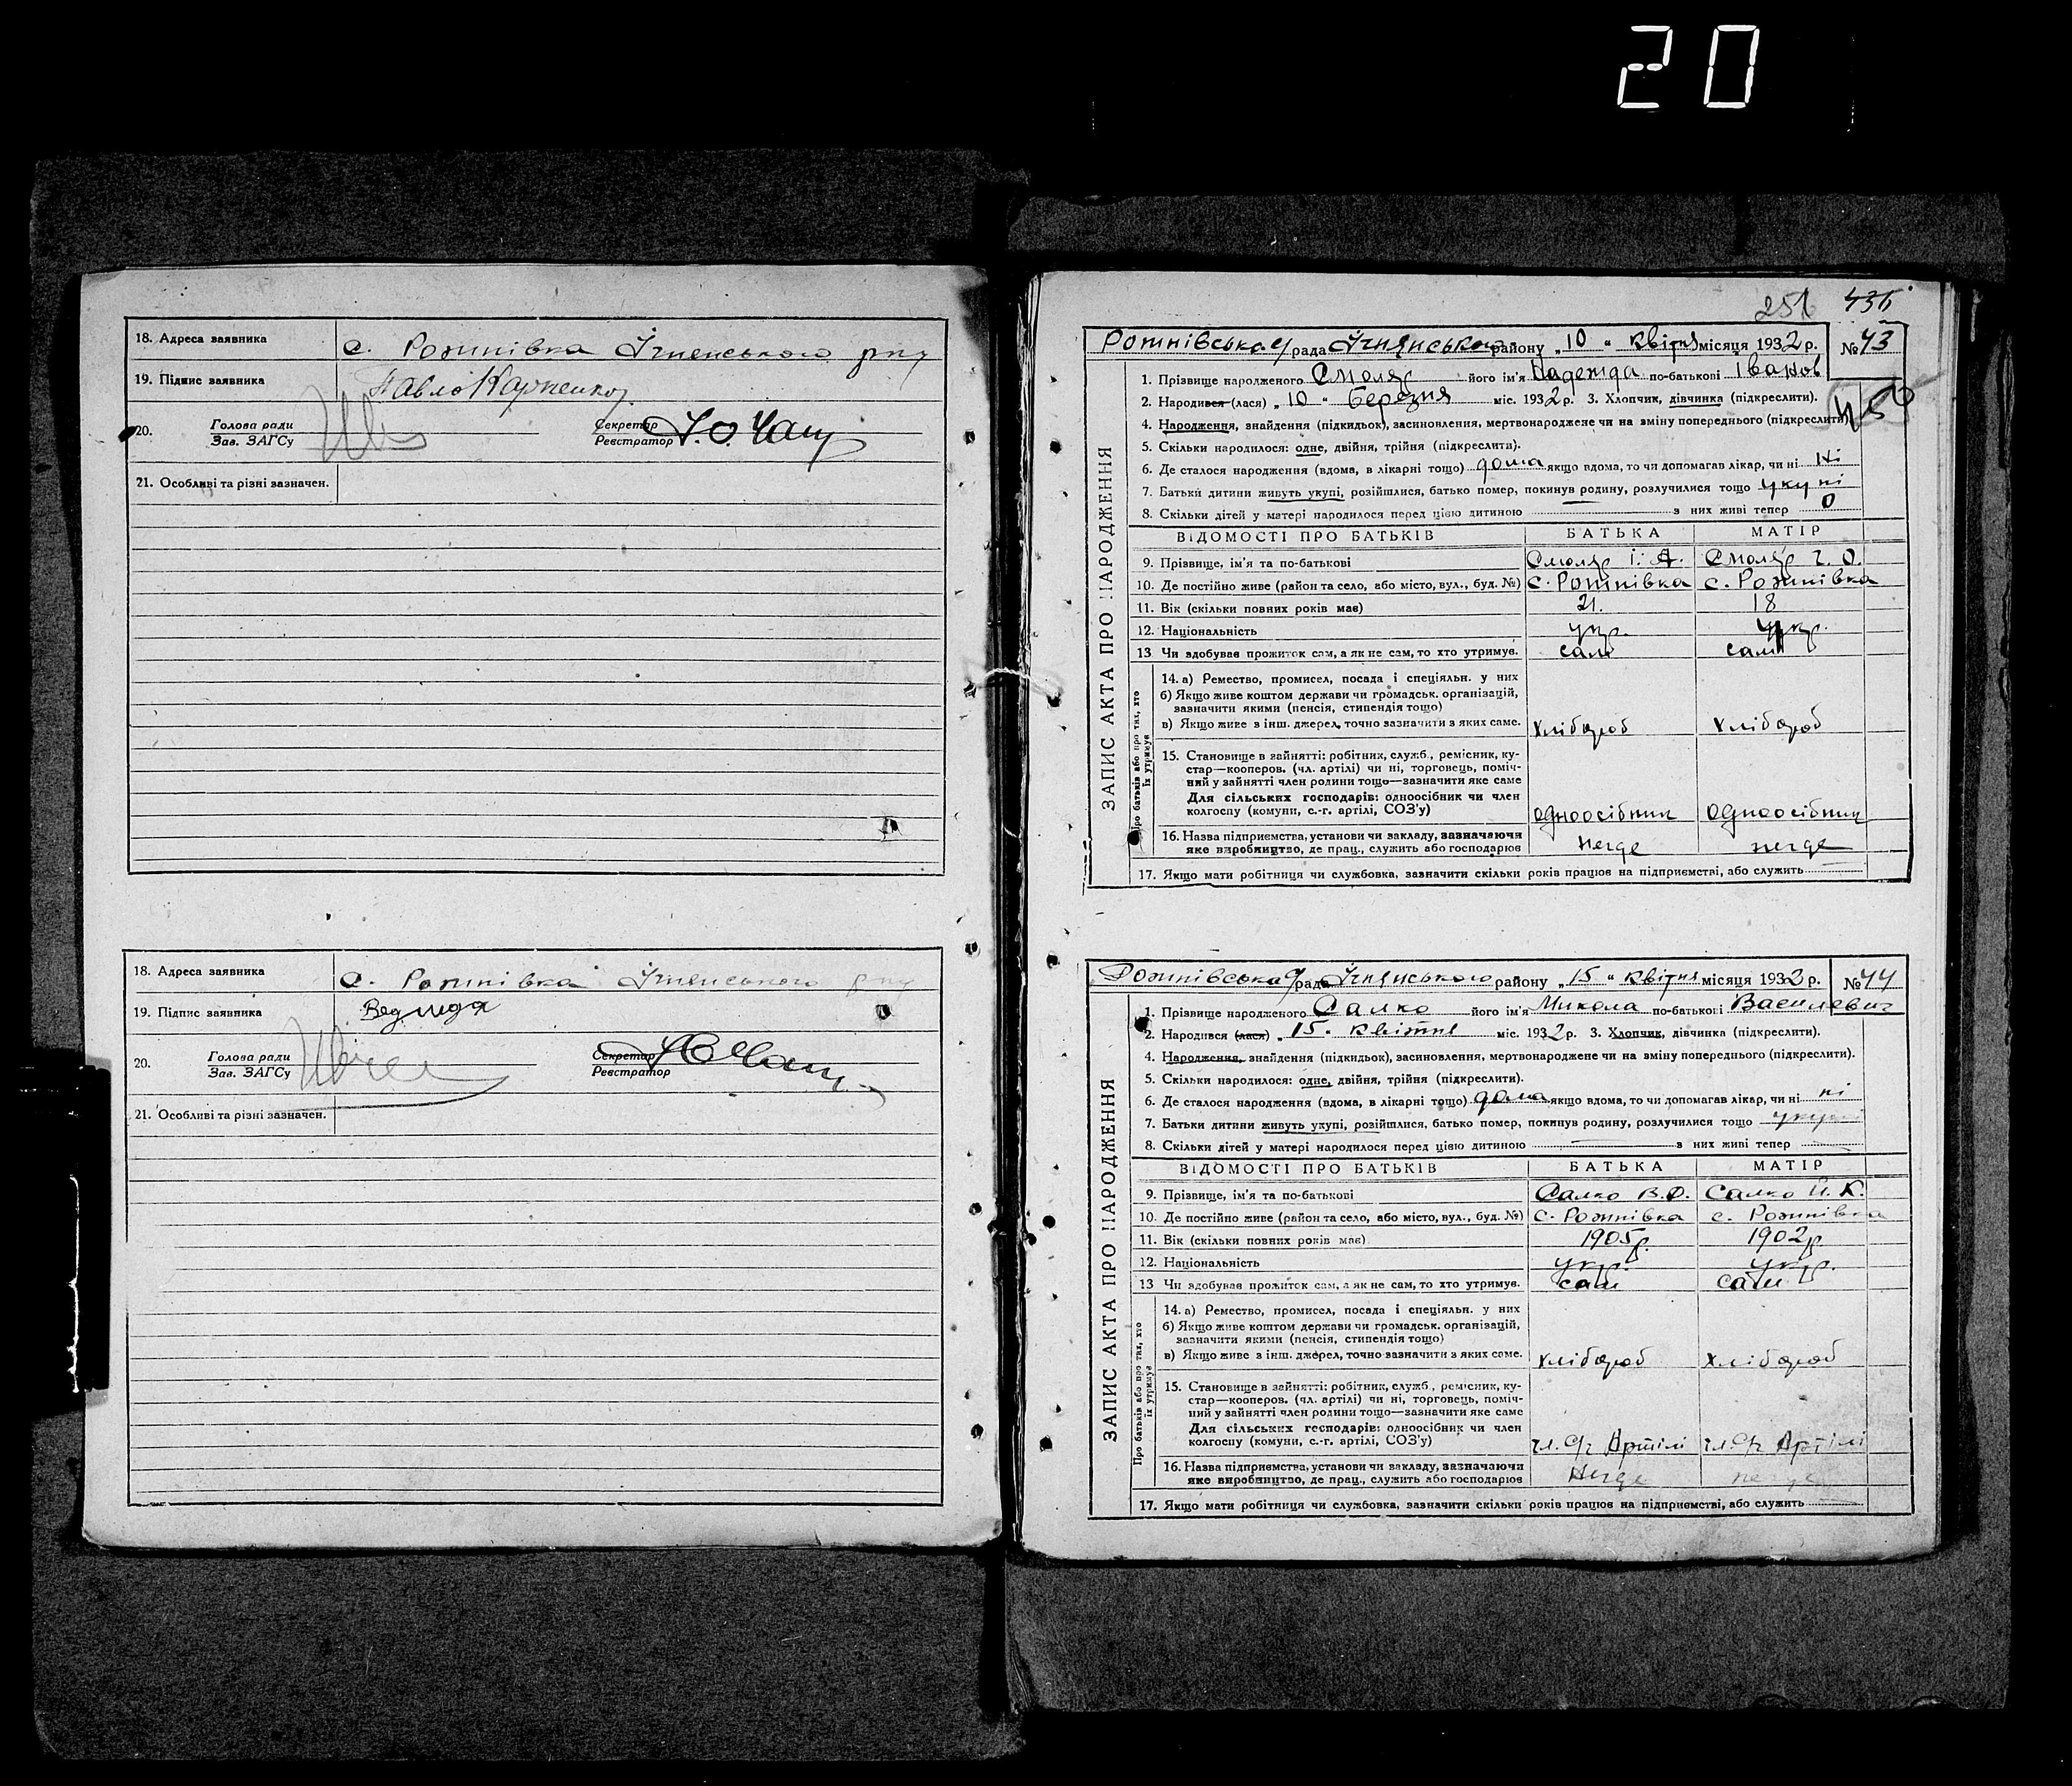 20
18. Адреса заявника с. Рожнівка Ічнянського р-ну
19. Підпис заявника Павло Карпенко
20. Голова ради Секретар
Зав. ЗАГСу Реєстратор
21. Особливі та різні зазначен.
18. Адреса заявника с. Рожнівка Ічнянського р-ну
19. Підпис заявника
20. Голова ради Секретар
Зав. ЗАГСу Реєстратор
21. Особливі та різні зазначен.
251
ЗАПИС АКТА ПРО НАРОДЖЕННЯ
Рожнівська рада Ічнянського району „10“ квітня місяця 1932 р. № 43
1. Прізвище народженого Смоляр його ім'я Надежда по-батькові Іванов
2. Народився (лася) „10“ березня міс. 1932 р. 3. Хлопчик, дівчинка (підкреслити).
4. Народження, знайдення (підкидьок), засиновлення, мертвонароджене чи на зміну попереднього (підкреслити).
5. Скільки народилося: одне, двійня, трійня (підкреслити).
6. Де сталося народження (вдома, в лікарні тощо) дома якщо вдома, то чи допомагав лікар, чи ні ні
7. Батьки дитини живуть укупі, розійшлися, батько помер, покинув родину, розлучилися тощо укупі
8. Скільки дітей у матері народилося перед цією дитиною з них живі тепер 0
ВІДОМОСТІ ПРО БАТЬКІВ БАТЬКА МАТІР
9. Прізвище, ім'я та по-батькові Смоляр І. А. Смоляр Г. О.
10. Де постійно живе (район та село, або місто, вул., буд. №) с. Рожнівка с. Рожнівка
11. Вік (скільки повних років має) 21. 18
12. Національність укр. укр.
13 Чи здобуває прожиток сам, а як не сам, то хто утримує. сам сам
Про батьків або про тих, хто їх утримує
14. а) Ремество, промисел, посада і спеціяльн. у них
б) Якщо живе коштом держави чи громадськ. організацій,
зазначити якими (пенсія, стипендія тощо)
в) Якщо живе з інш. джерел, точно зазначити з яких саме. хлібороб хлібороб
15. Становище в зайнятті: робітник, служб., ремісник, ку-
стар—кооперов. (чл. артілі) чи ні, торговець, поміч-
ний у зайнятті член родини тощо—зазначити яке саме
Для сільських господарів: одноосібник чи член
колгоспу (комуни, с.-г. артілі, СОЗ'у) одноосібник одноосібник
16. Назва підприємства, установи чи закладу, зазначаючи
яке виробництво, де прац., служить або господарює негде негде
17. Якщо мати робітниця чи службовка, зазначити скільки років працює на підприємстві, або служить
ЗАПИС АКТА ПРО НАРОДЖЕННЯ
Рожнівська рада Ічнянського району „15“ квітня місяця 1932 р. № 44
1. Прізвище народженого Салко його ім'я Микола по-батькові Василевич
2. Народився (лася) „15“ квітня міс. 1932 р. 3. Хлопчик, дівчинка (підкреслити).
4. Народження, знайдення (підкидьок), засиновлення, мертвонароджене чи на зміну попереднього (підкреслити).
5. Скільки народилося: одне, двійня, трійня (підкреслити).
6. Де сталося народження (вдома, в лікарні тощо) дома якщо вдома, то чи допомагав лікар, чи ні ні
7. Батьки дитини живуть укупі, розійшлися, батько помер, покинув родину, розлучилися тощо укупі
8. Скільки дітей у матері народилося перед цією дитиною з них живі тепер
ВІДОМОСТІ ПРО БАТЬКІВ БАТЬКА МАТІР
9. Прізвище, ім'я та по-батькові Салко В. О. Салко Й. К.
10. Де постійно живе (район та село, або місто, вул., буд. №) с. Рожнівка с. Рожнівка
11. Вік (скільки повних років має) 1905 р. 1902 р
12. Національність укр. укр.
13 Чи здобуває прожиток сам, а як не сам, то хто утримує. сам сам
Про батьків або про тих, хто їх утримує
14. а) Ремество, промисел, посада і спеціяльн. у них
б) Якщо живе коштом держави чи громадськ. організацій,
зазначити якими (пенсія, стипендія тощо)
в) Якщо живе з інш. джерел, точно зазначити з яких саме. хлібороб хлібороб
15. Становище в зайнятті: робітник, служб., ремісник, ку-
стар—кооперов. (чл. артілі) чи ні, торговець, поміч-
ний у зайнятті член родини тощо—зазначити яке саме
Для сільських господарів: одноосібник чи член
колгоспу (комуни, с.-г. артілі, СОЗ'у) чл. с/г Артілі чл. с/г Артілі
16. Назва підприємства, установи чи закладу, зазначаючи
яке виробництво, де прац., служить або господарює негде негде
17. Якщо мати робітниця чи службовка, зазначити скільки років працює на підприємстві, або служить